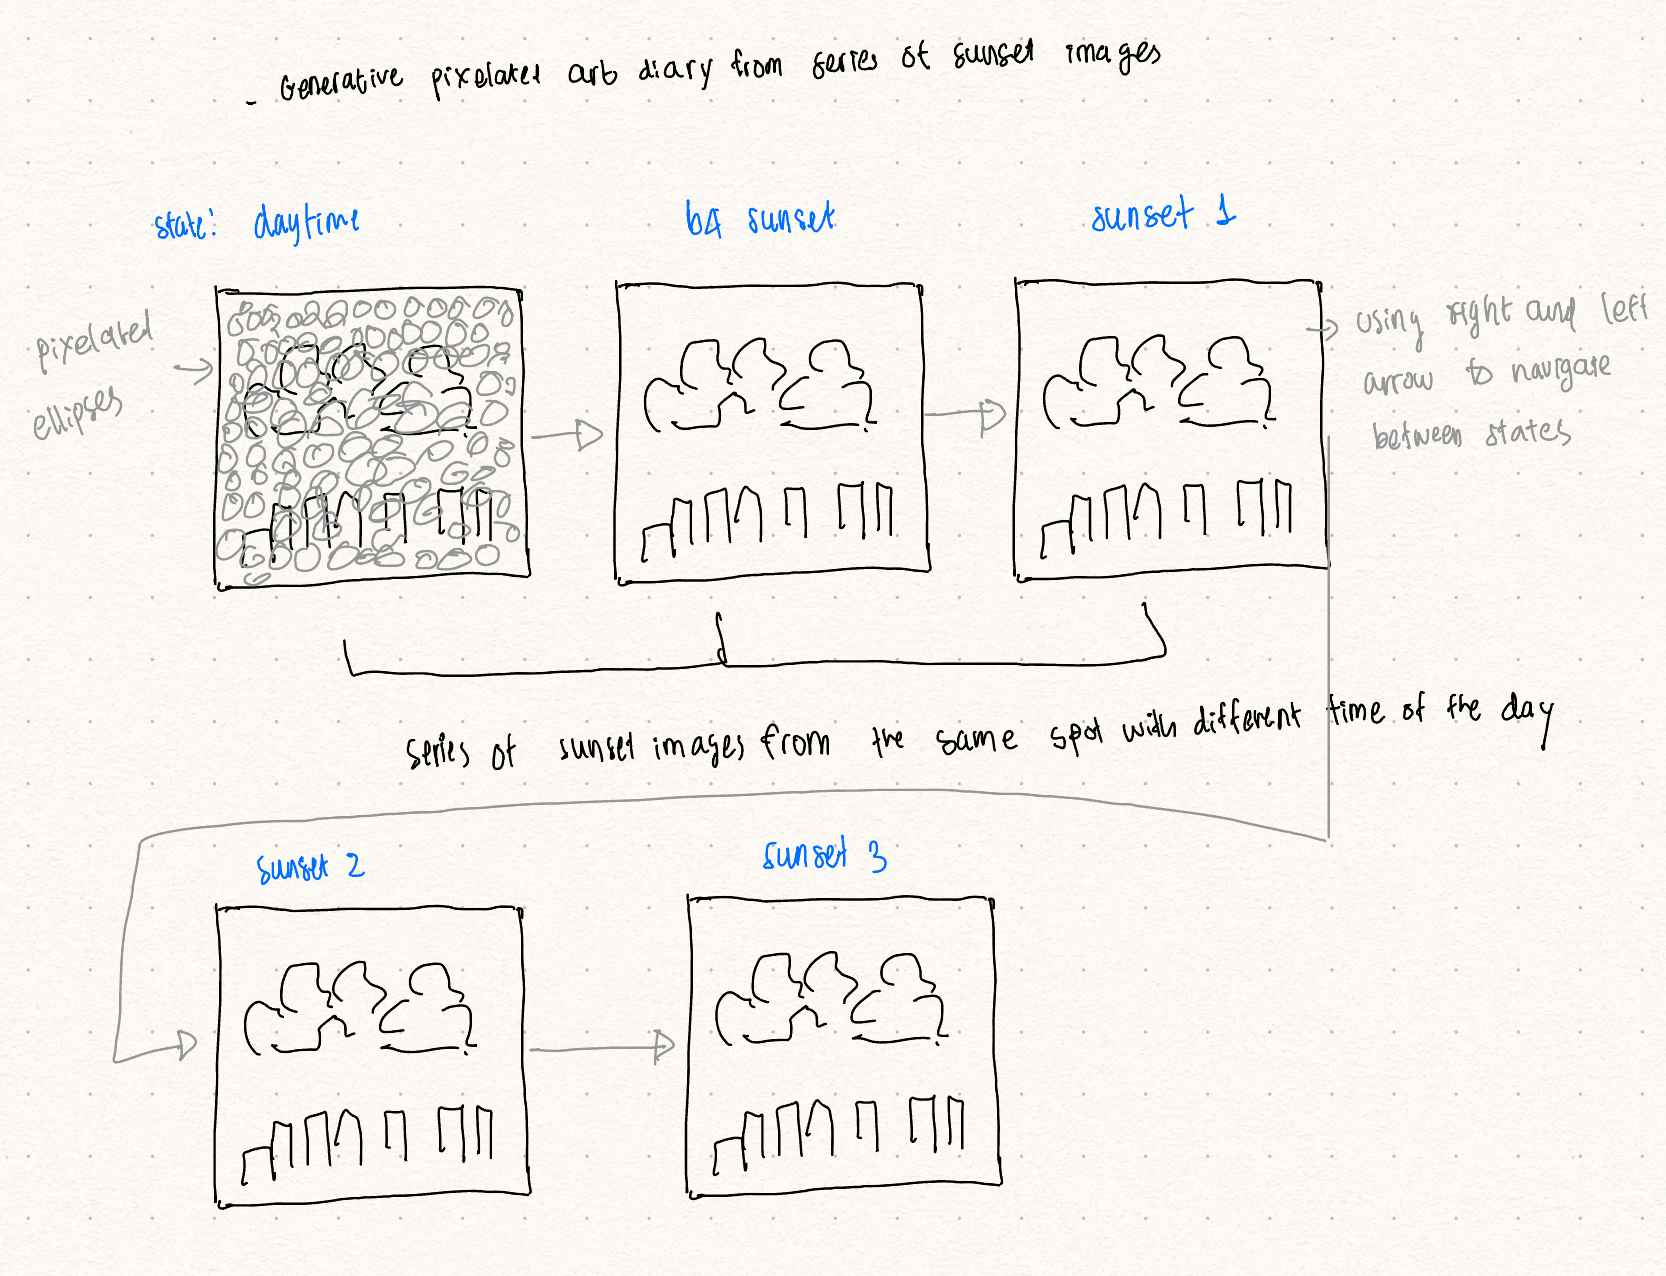 - Generative pixelated art diary from series of sunset images
state: daytime
b4 sunset
sunset 1
pixelated
ellipses
using right and left
arrow to navigate
between states
series of sunset images from the same spot with different time of the day
sunset 2
sunset 3